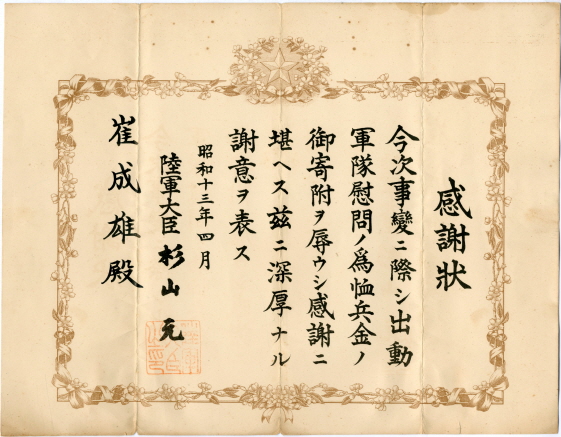 感謝狀
今次事變ニ際シ出動
軍隊慰問ノ爲恤兵金ノ
御寄附ヲ辱ウシ感謝ニ
堪ヘス玆ニ深厚ナル
謝意ヲ表ス
昭和十三年四月
陸軍大臣 杉山元
崔成雄殿